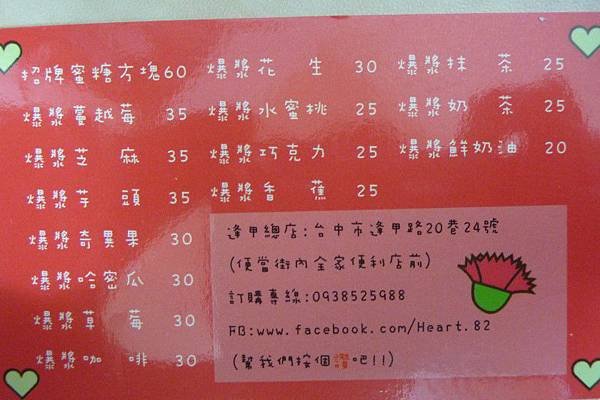 招牌蜜糖方塊60
爆漿蔓越莓 35
爆漿芝麻 35
爆漿芋頭 35
爆漿奇異果 30
爆漿哈密瓜 30
爆漿草莓 30
爆漿咖啡 30
爆漿花生 30
爆漿水蜜桃 25
爆漿巧克力 25
爆漿香蕉 25
爆漿抹茶 25
爆漿奶茶 25
爆漿鮮奶油 20
逢甲總店:台中市逢甲路20巷24號
(便當街內全家便利店前)
訂購專線:0938525988
FB:www.facebook.com/Heart.82
(幫我們按個讚吧!!)